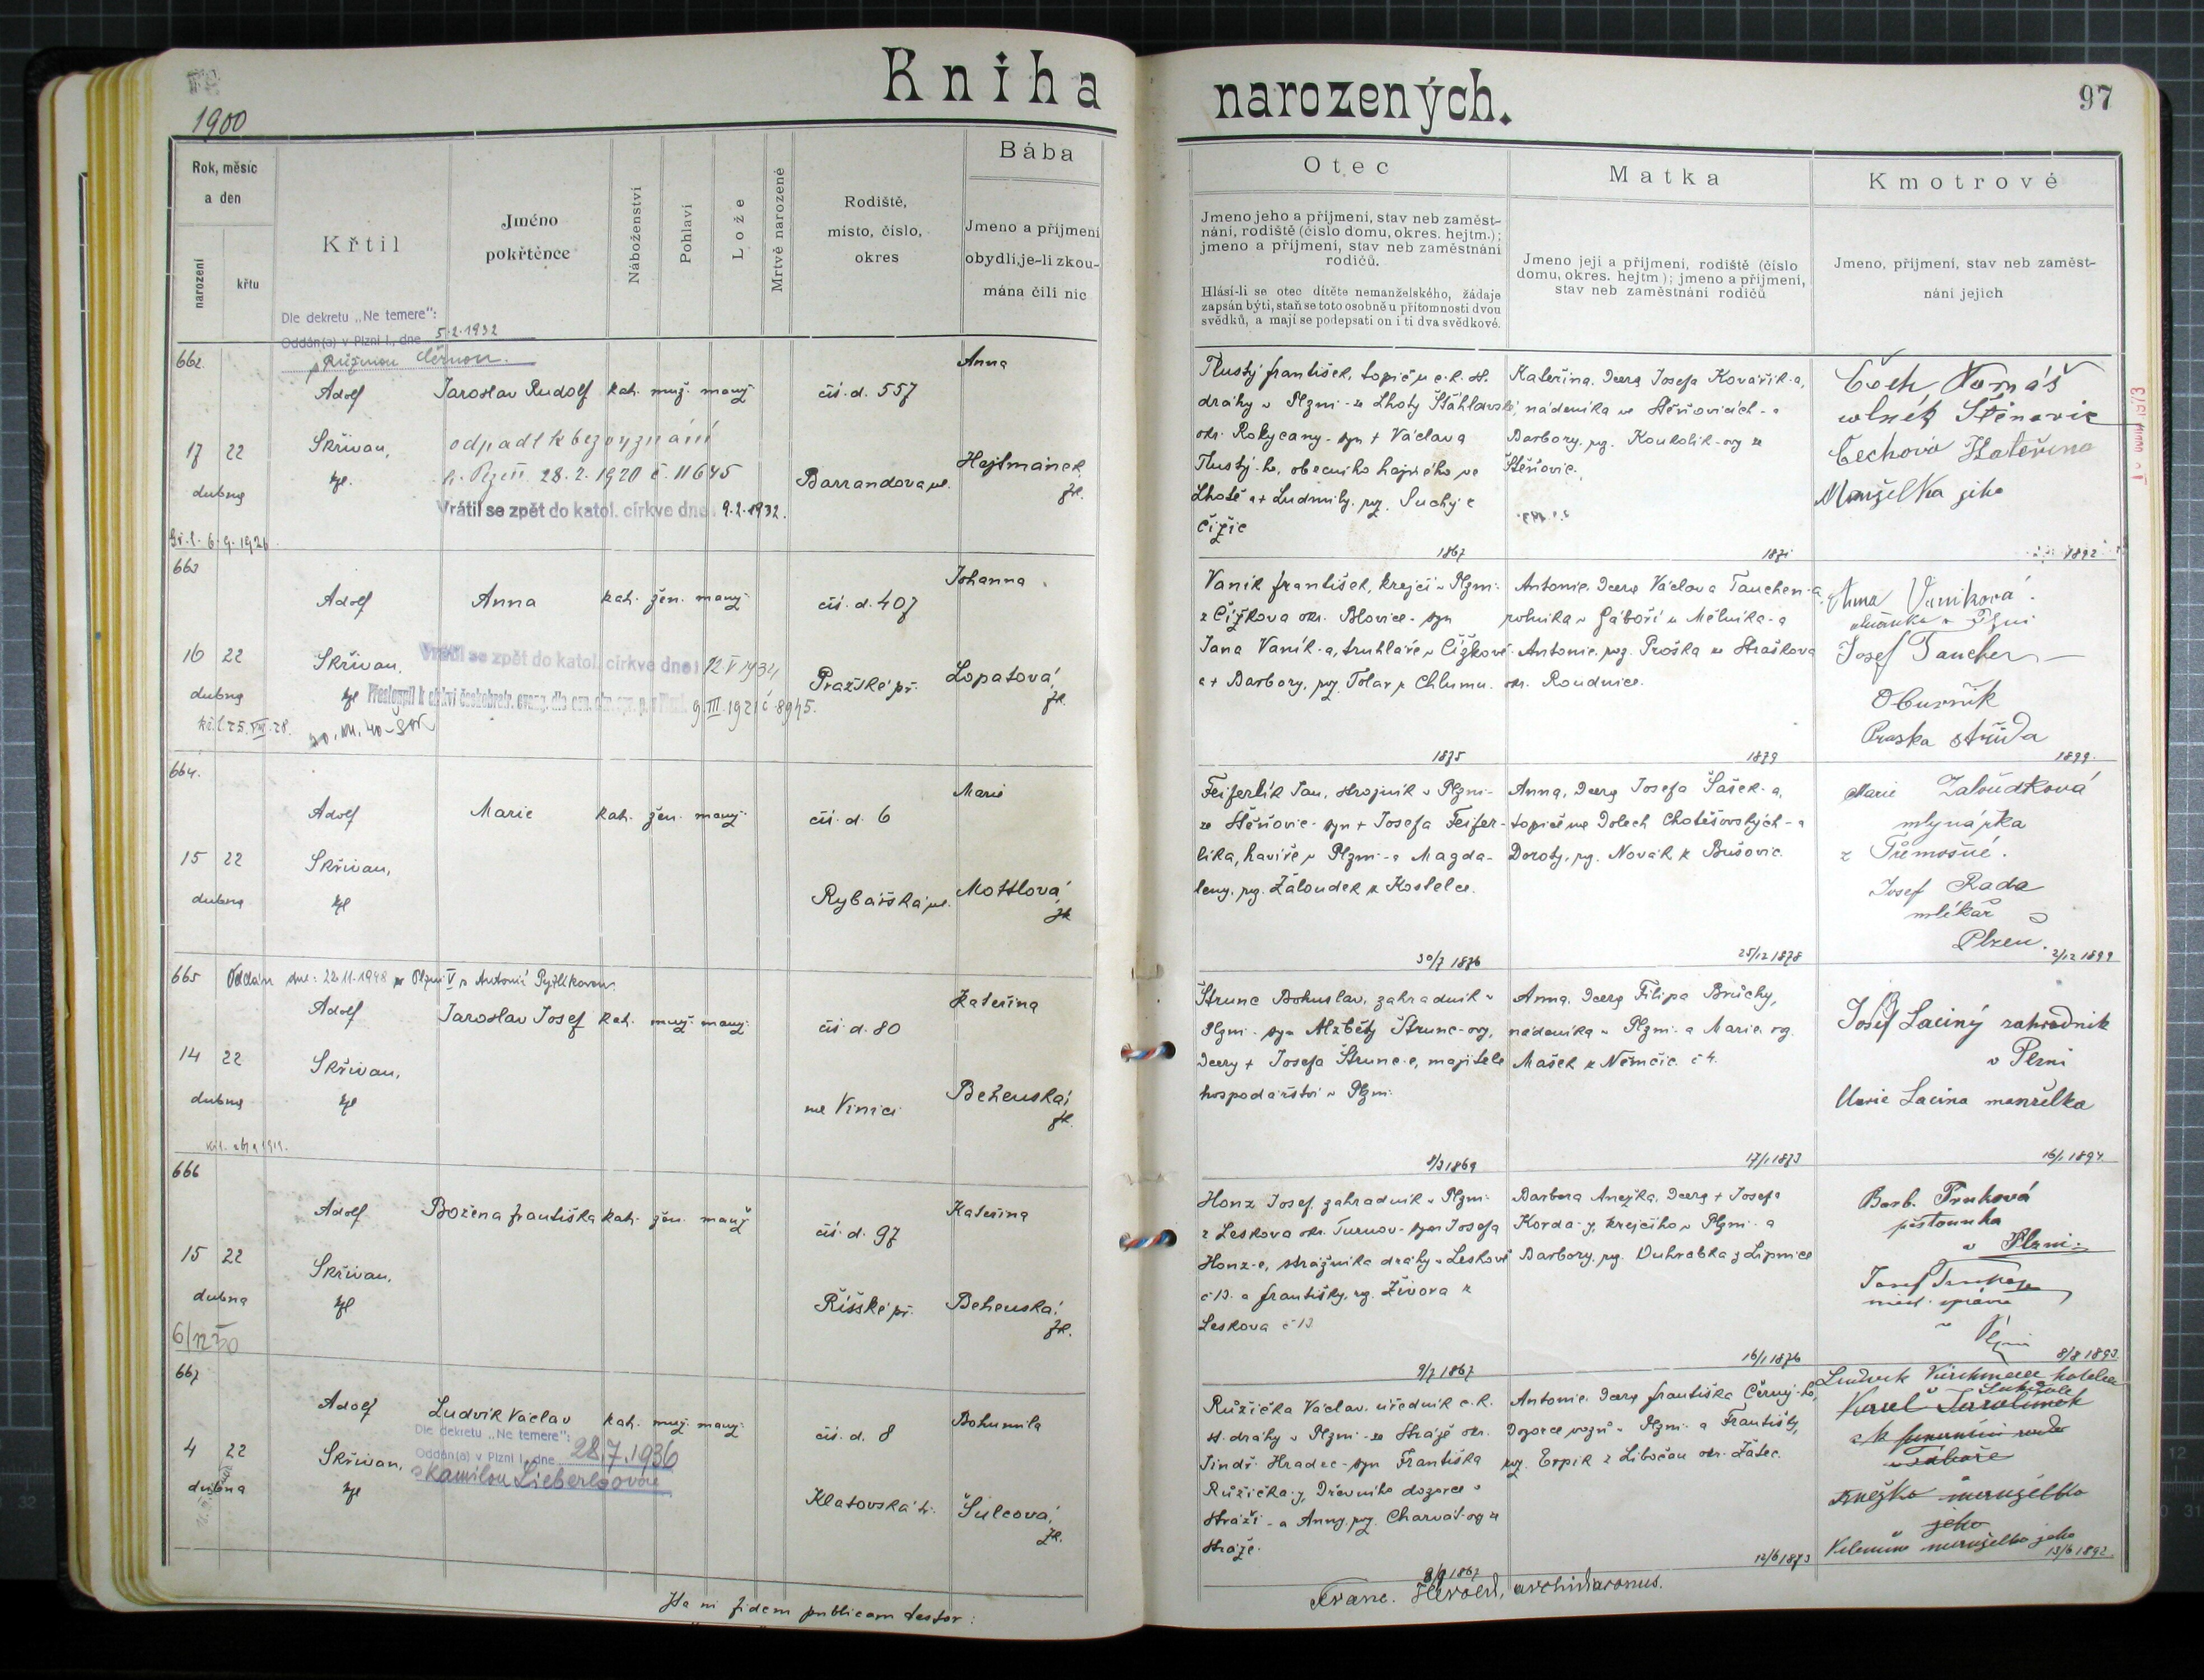 Kniha narozených.
97
1900
Rok, měsíc
a den
narození
křtu
Křtil
Jméno
pokřtěnce
Náboženství
Pohlaví
Lože
Mrtvě narozené
Rodiště,
místo, číslo,
okres
Bába
Jmeno a příjmení
obydlí, je-li zkou-
mána čili nic
Otec
Jmeno jeho a příjmení, stav neb zaměst-
nání, rodiště (číslo domu, okres. hejtm.);
jmeno a příjmení, stav neb zaměstnání
rodičů.
Hlásí-li se otec dítěte nemanželského, žádaje
zapsán býti, staň se toto osobně u přítomnosti dvou
svědků, a mají se podepsati on i ti dva svědkové.
Matka
Jmeno její a příjmení, rodiště (číslo
domu, okres. hejtm.); jmeno a příjmení,
stav neb zaměstnání rodičů
Kmotrové
Jmeno, příjmení, stav neb zaměst-
nání jejich
Dle dekretu „Ne temere":
Oddán(a) v Plzni I., dne 5.2.1932
s Růženou Černou.
662.
17 22
dubna
6.9.1926
Adolf
Skřivan,
kpl.
Jaroslav Rudolf kath. muž. manž.
odpadl k bezvyznání
28.2.1920 č. 11645
Vrátil se zpět do katol. církve dne: 9.2.1932.
čís. d. 557
Barrandova ul.
Anna
Hajtmánek
zk.
Tlustý František, topič u c.k. st.
dráhy v Plzni - ze Lhoty Štáhlavské,
okr. Rokycany - syn + Václava
Tlustý-ho, obecního hajného ve
Lhotě a + Ludmily, roz. Suchý z
Čižic
1867
Kateřina, dcera Josefa Kovářík-a,
nádeníka ve Štěnovicích - a
Barbory, roz. Koukolík-ovy ze
Štěnovic.
1871
Čech Tomáš
Štěnovic
Čechová Kateřina
Manželka jeho
1892
663
16 22
dubna
Adolf
Skřivan,
kpl
Anna kath. žen. manž.
Vrátil se zpět do katol. církve dne: 12 V 1934
9.III.1921 č. 8945.
čís. d. 407
Pražské př.
Johanna
Lopatová,
zk.
Vaník František, krejčí v Plzni
z Čížkova okr. Blovice - syn
Jana Vaník-a, truhláře v Čížkově
a + Barbory, roz. Tolar z Chlumu.
1875
Antonie, dcera Václava Tauchen-a,
rolníka v Záboří u Mělníka - a
Antonie, roz. Proška ze Straškova
okr. Roudnice.
1879
Anna Vaníková
Josef Tauchen
Obuvník
1899
664.
15 22
dubna
Adolf
Skřivan,
kpl
Marie kath. žen. manž.
čís. d. 6
Rybářská ul.
Marie
Mottlová,
zk
Feiferlík Jan, strojník v Plzni -
ze Štěnovic - syn + Josefa Feifer-
líka, havíře v Plzni - a Magda-
leny, roz. Žaloudek z Kostelce.
30/7 1876
Anna, dcera Josefa Šašek-a,
topiče na Dolech Chotěšovských - a
Doroty, roz. Novák z Bušovic.
25/12 1878
Marie Žaloudková
mlynářka
z Třemošné.
Josef Rada
mlékař
Plzeň.
2/12 1899
665 Oddán dne: 22.11.1948 v Plzni V s Antonií Pyžlíkovou.
14 22
dubna
Adolf
Skřivan,
kpl
Jaroslav Josef kath. muž. manž.
čís. d. 80
na Vinici
Kateřina
Beženská,
zk.
Štrunc Bohuslav, zahradník v
Plzni - syn Alžběty Štrunc-ovy,
dcery + Josefa Štrunc-e, majitele
hospodářství v Plzni.
8/3 1869
Anna, dcera Filipa Brůchy,
nádeníka v Plzni - a Marie, roz.
Mašek z Němčic č 4.
17/1 1873
Josef Laciný zahradník
v Plzni
Marie Lacina manželka
16/1 1894
666
15 22
dubna
Adolf
Skřivan,
kpl
Božena Františka kath. žen. manž
čís. d. 97
Říšské př.
Kateřina
Beženská,
zk.
Honz Josef, zahradník v Plzni
z Leskova okr. Turnov - syn Josefa
Honz-e, strážníka dráhy v Leskově
č 13. a Františky, roz. Živora z
Leskova č 13
9/7 1867
Barbora Anežka, dcera + Josefa
Korda-y, krejčího v Plzni - a
Barbory, roz. Vuhrabka z Lipnice
16/1 1876
Barb. Trnková
pěstounka
v Plzni.
Josef Trnka
v Plzni
8/8 1893
667
4 22
dubna
Adolf
Skřivan,
kpl
Ludvík Václav kath. muž. manž.
Dle dekretu „Ne temere":
Oddán(a) v Plzni I., dne 28.7.1936
s Kamilou Lieberleovou
čís. d. 8
Klatovská tř.
Bohumila
Šulcová,
zk.
Růžička Václav, úředník c.k.
st. dráhy v Plzni - ze Stráže okr.
Jindř. Hradec - syn Františka
Růžička-y, dřevního dozorce v
Stráži - a Anny, roz. Charvát-ovy ze
Stráže.
8/9 1867
Antonie, dcera Františka Černý-ho,
dozorce vozů v Plzni - a Františky,
roz. Erpik z Libočan okr. Žatec.
12/6 1873
Karel
Anežka manželka
jeho
manželka jeho
13/6 1892
Ita ni fidem publicam testor:
Franc. Herold, archidiaconus.